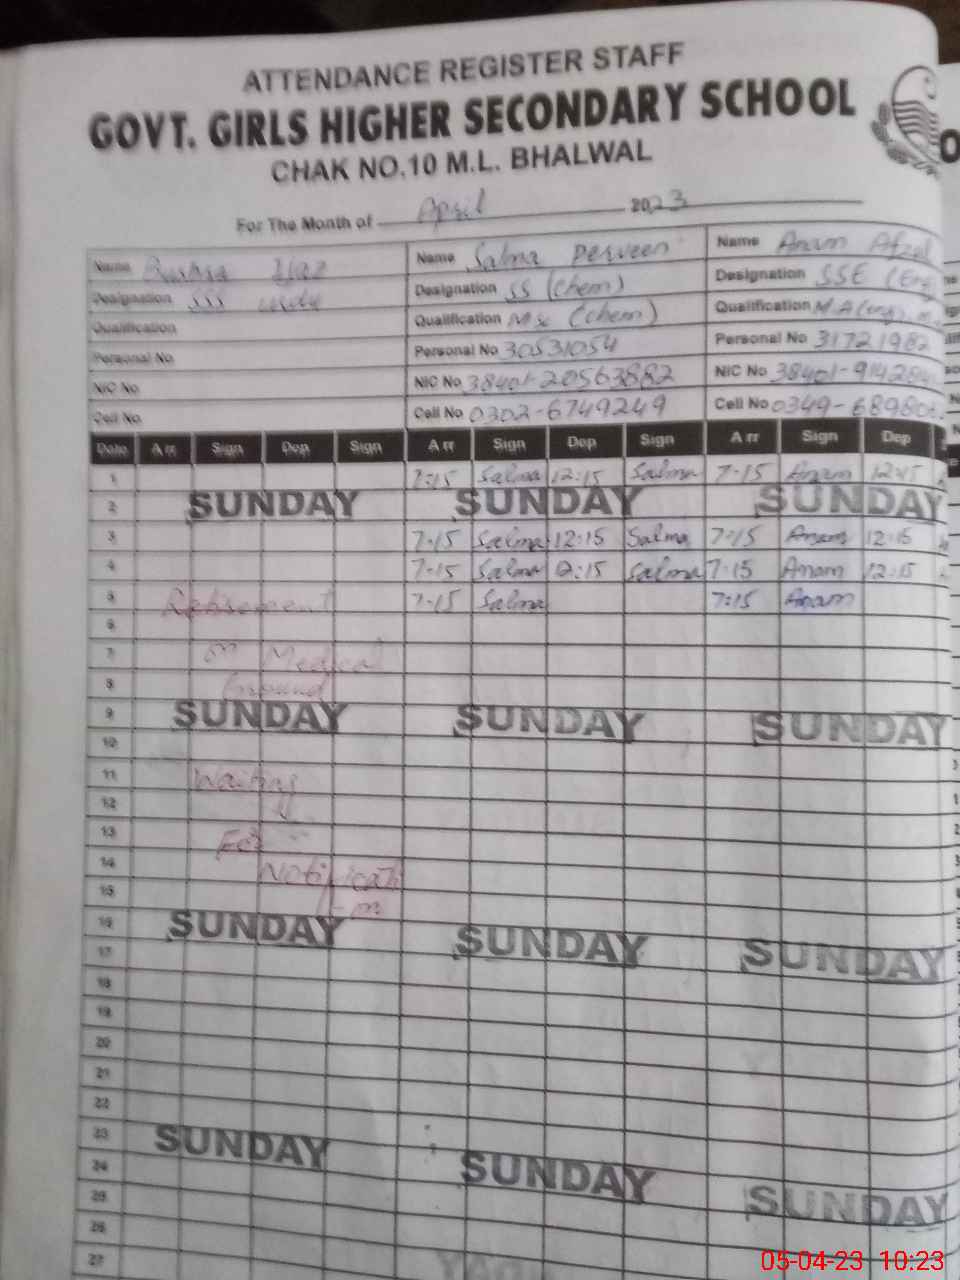 ATTENDANCE REGISTER STAFF
GOVT. GIRLS HIGHER SECONDARY SCHOOL
CHAK NO.10 M.L. BHALWAL
For The Month of April 2023
Name Bushra Ijaz Name Salma Perveen Name Anam Afzal
Designation SSS urdu Designation SS (Chem) Designation SSE (Eng
Qualification Qualification MSc (chem) Qualification M.A (eng),
Personal No Personal No 30531054 Personal No 31721982
NIC No NIC No 38401-20563882 NIC No 38401-914284
Cell No Cell No 0302-6749249 Cell No 0349-68980
Date Arr Sign Dep Sign Arr Sign Dep Sign Arr Sign Dep
1 7:15 Salma 12:15 Salma 7-15 Anam 12:15
2 SUNDAY SUNDAY SUNDAY
3 7-15 Salma 12:15 Salma 7:15 Anam 12:15
4 7-15 Salma 12:15 Salma 7-15 Anam 12:15
5 Retirement 7-15 Salma 7:15 Anam
6
7 on Medical
8 Ground
9 SUNDAY SUNDAY SUNDAY
10
11 Waiting
12
13 For
14 Notificati
15 -on
16 SUNDAY SUNDAY SUNDAY
17
18
19
20
21
22
23 SUNDAY SUNDAY SUNDAY
24
25
26
27
05-04-23 10:23